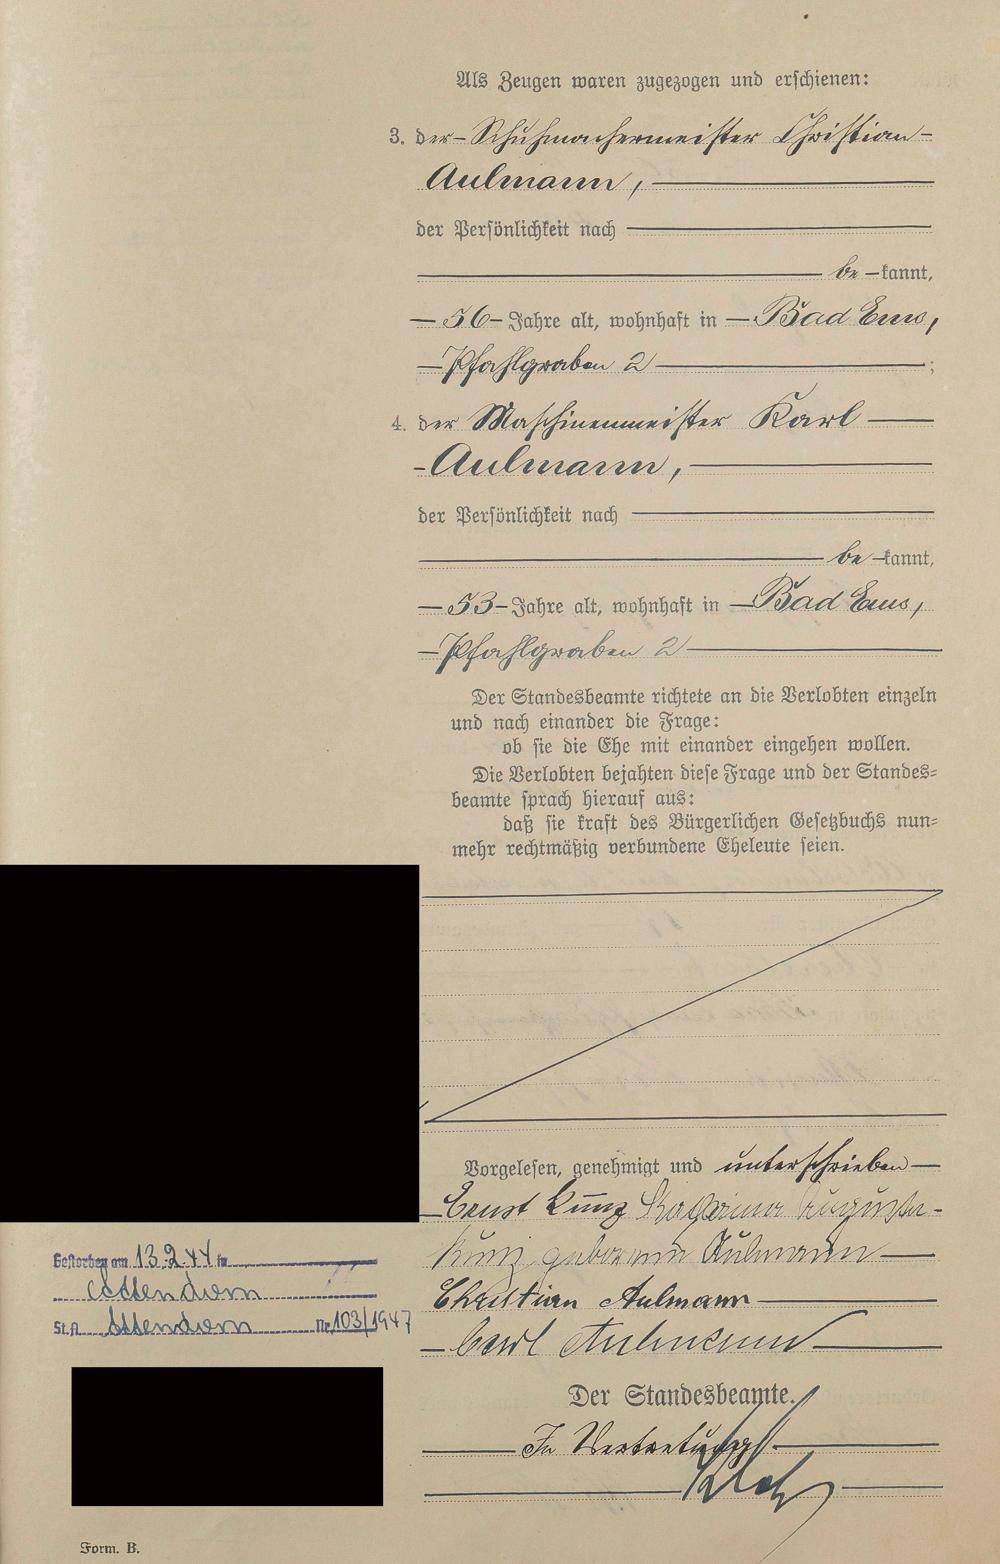 Als Zeugen waren zugezogen und erschienen:
3. der Schuhmachermeister Christian
Aulmann,
der Persönlichkeit nach
be kannt,
56 Jahre alt, wohnhaft in Bad Ems,
Pfahlgraben 2 ;
4. der Maschinenmeister Karl
Aulmann,
der Persönlichkeit nach
be kannt,
53 Jahre alt, wohnhaft in Bad Ems,
Pfahlgraben 2
Der Standesbeamte richtete an die Verlobten einzeln
und nach einander die Frage:
ob sie die Ehe mit einander eingehen wollen.
Die Verlobten bejahten diese Frage und der Standes=
beamte sprach hierauf aus:
daß sie kraft des Bürgerlichen Gesetzbuchs nun=
mehr rechtmäßig verbundene Eheleute seien.
Vorgelesen, genehmigt und unterschrieben
Ernst Kunz Auguste
Kunz geborene Aulmann
Christian Aulmann
Carl Aulmann
Der Standesbeamte.
In Vertretung
Gestorben am 13.2.44 in
Attendorn
St.A. Attendorn Nr. 103/1947
Form. B.